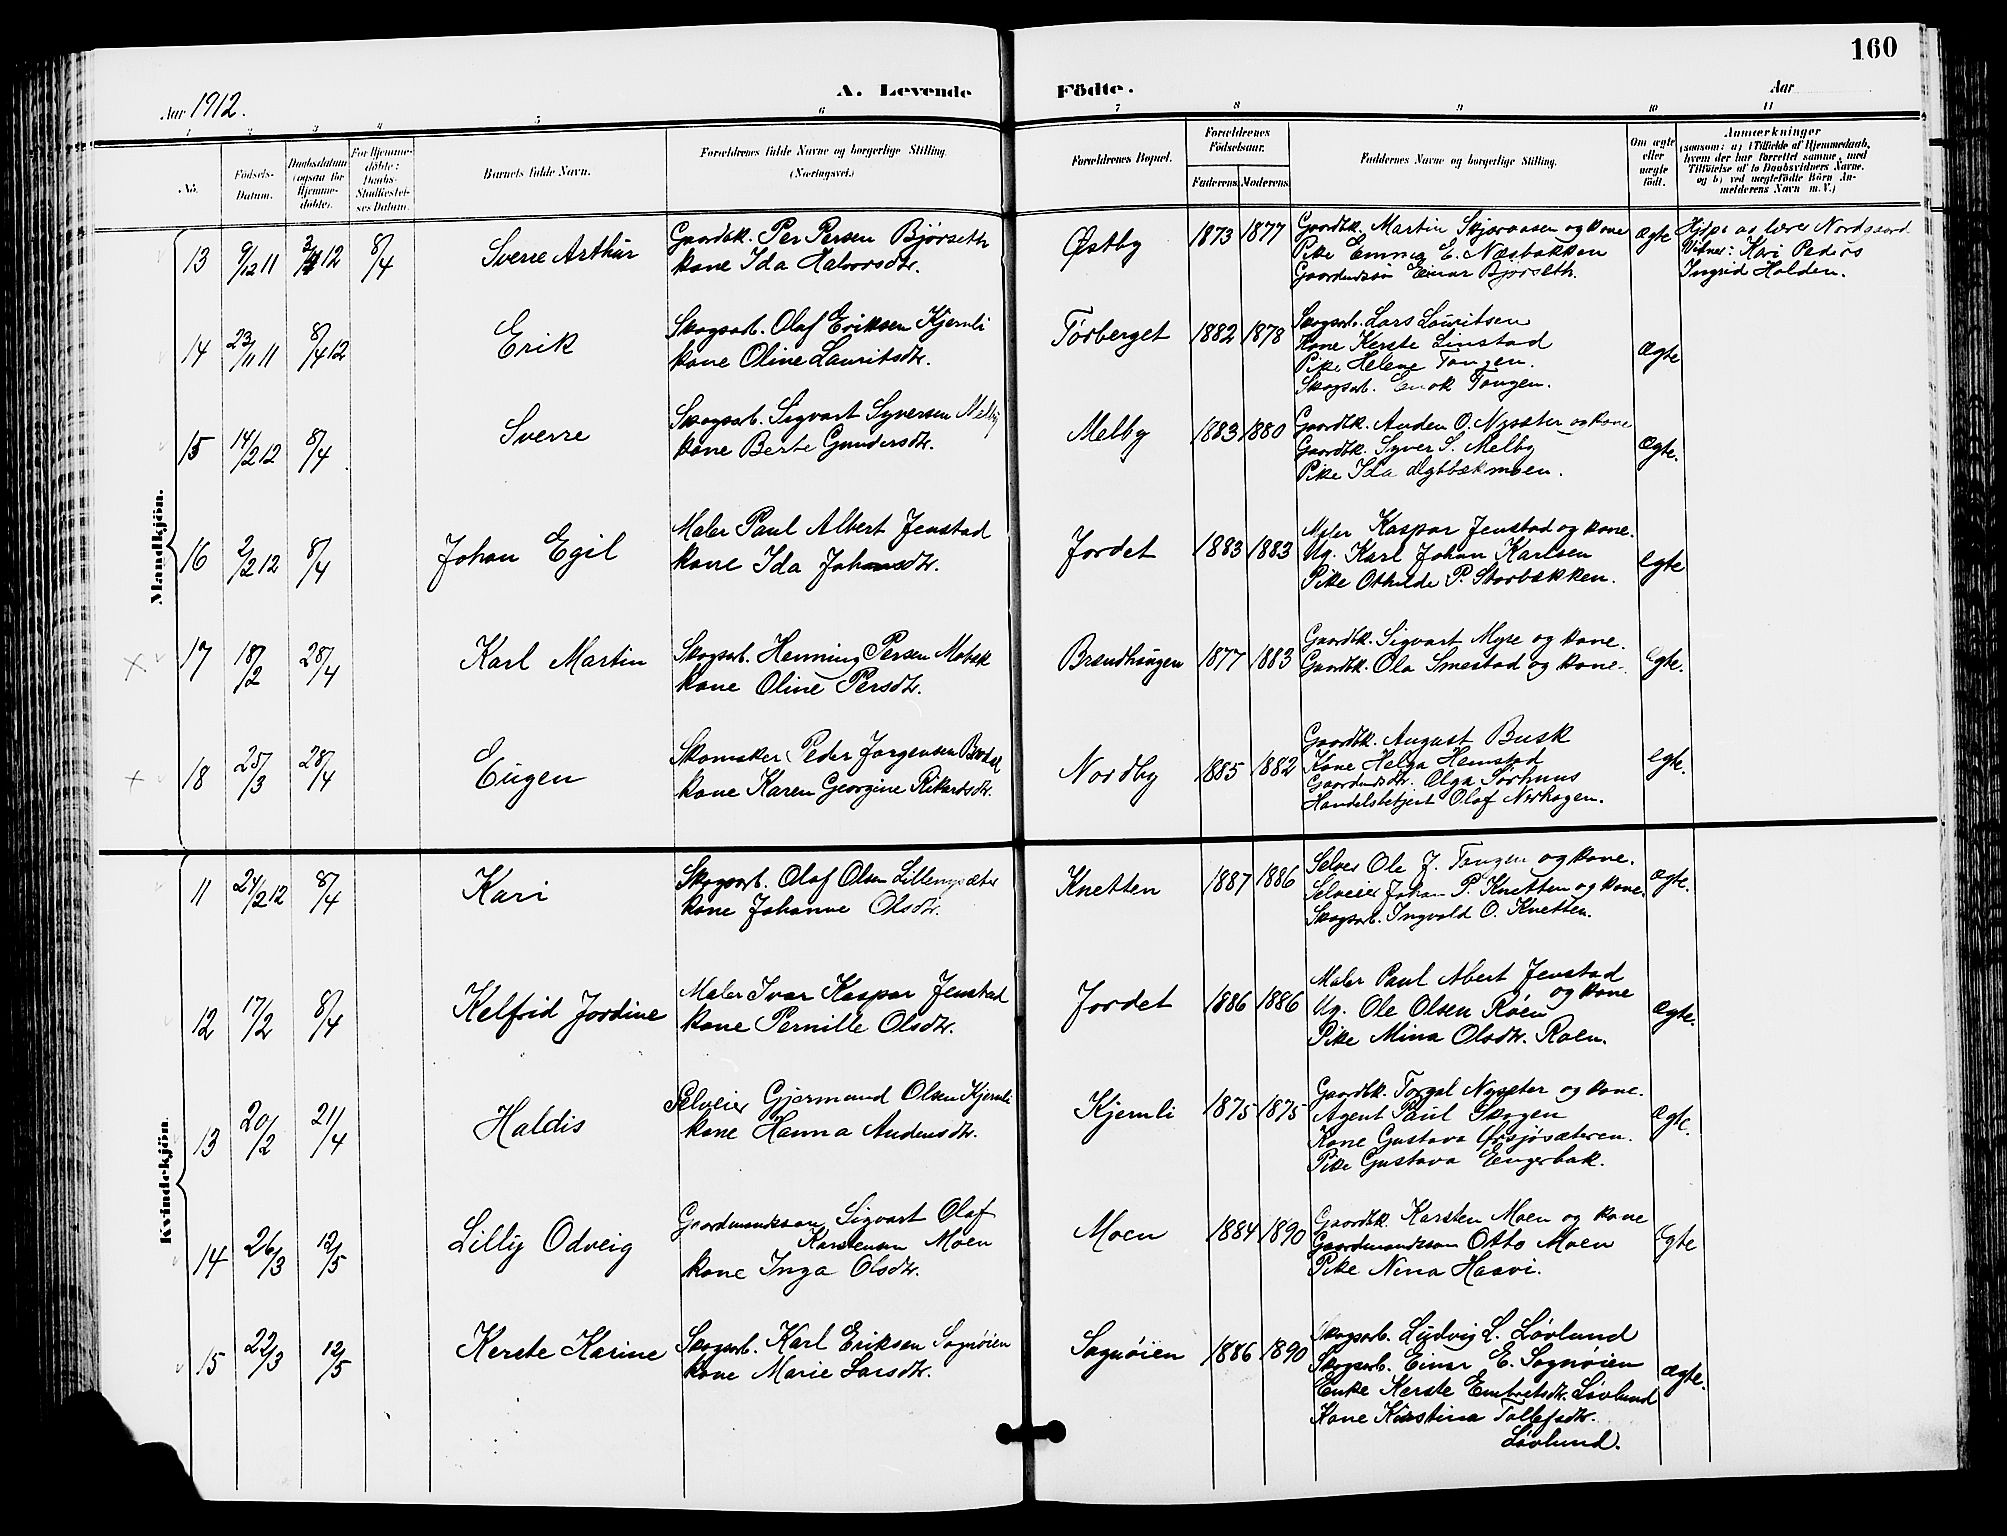 160
Aar 1912.
A. Levende
Födte.
Aar
1 2 3 4 5 6 7 8 9 10 11
No.
Födsels-Datum.
Daabsdatum (ogsaa for Hjemme-döbte).
For Hjemme-döbte: Daabs-Stadfæstel-ses Datum.
Barnets fulde Navn.
Forældrenes fulde Navne og borgerlige Stilling. (Næringsvei.)
Forældrenes Bopæl.
Forældrenes Födselsaar.
Faderens. Moderens.
Faddernes Navne og borgerlige Stilling.
Om ægte eller uægte födt.
Anmærkninger
(saasom: a) i Tilfælde af Hjemmedaab, hvem der har forrettet samme, med Tilföielse af to Daabsvidners Navne, og b) ved uægtefödte Börn Anmelderens Navn m. V.)
Mandkjön.
13 9/12 11 12 8/4 Sverre Arthur
Gaardbk. Per Persen Bjørseth
kone Ida Halvorsdtr.
Østby 1873 1877
Gaardbk. Martin Skjæraasen og kone
Pike Emma E. Næsbakken
Gaardmandssøn Einar Bjørseth.
ægte
Hjdpt av lærer Nordgaard.
Vitner: Kari Peders
Ingrid Holden.
14 23/11 11 8/4 12 Erik
Skogsarb. Olaf Eriksen Kjernli
kone Oline Lauritsdtr.
Törberget 1882 1878
Skogsarb. Lars Lauritsen
Kone Kerste Linstad
Pike Helene Tangen.
Skogsarb. Enok Tangen.
ægte
15 14/2 12 8/4 Sverre
Skogsarb. Sigvart Syversen Melby
kone Berte Gundersdtr.
Melby 1883 1880
Gaardbk. Anden O. Nysæter og kone
Gaardbk. Syver S. Melby
Pike Ida
ægte.
16 2/2 12 8/4 Johan Egil
Maler Paul Albert Jenstad
kone Ida Johansdtr.
Jordet 1883 1883
Maler Kaspar Jenstad og kone.
Ug. Karl Johan Karlsen
Pike Othilde P. Storbækken.
egte
17 18/2 28/4 Karl Martin
Skogsarb. Henning Persen Mobæk
kone Oline Persdtr.
Brændhaugen 1877 1883
Gaardbk. Sigvart Myre og kone.
Gaardbk. Ola Smestad og kone.
Egte.
18 25/3 28/4 Eugen
Skomaker Peder Jorgensen
kone Karen Georgine Rikardsdtr.
Nordby 1885 1882
Gaardbk. August Busk
Kone Helga Hemstad
Gaardmdsdtr. Olga Sørhuus
Handelsbetjent Olaf Nerhagen.
egte.
Kvindekjön.
11 24/2 12 8/4 Kari
Skogsarb. Olaf Olsen Lillenysæter
kone Johanne Olsdtr.
Knetten 1887 1886
Selveier Ole J. Tangen og kone.
Selveier Johan P. Knetten og kone.
Skogsarb. Ingvald O. Knetten.
ægte.
12 17/2 8/4 Kelfrid Jordine
Maler Ivar Kaspar Jenstad
kone Pernille Olsdtr.
Jordet 1886 1886
Maler Paul Albert Jenstad
og kone
Ug. Ole Olsen Röen
Pike Mina Olsdtr. Roen.
ægte.
13 20/2 21/4 Haldis
Selveier Gjermund Olsen Kjernli
kone Hanna Andersdtr.
Kjernli 1875 1875
Gaardbk. Torgal Nysæter og kone.
Agent Paul Skogen
Kone Gustava Ørsjøsæteren.
Pike Gustava Engerbak.
ægte.
14 26/3 12/5 Lilly Odveig
Gaardmandssøn Sigvart Olaf
Karstensen Moen
kone Inga Olsdtr.
Moen 1884 1890
Gaardbk. Karsten Moen og kone
Gaardmandssøn Otto Moen
Pike Nina Haavi.
Egte
15 22/3 12/5 Kerste Karine
Skogsarb. Karl Eriksen Sognöien
kone Marie Larsdtr.
Sognöien 1886 1890
Skogsarb. Ludvig L. Lövlund
Skogsarb. Einar E. Sognöien
Enke Kerste Embretsdtr. Lövlund
Kone Kirstina Tollefsdtr.
Lövlund.
ægte.